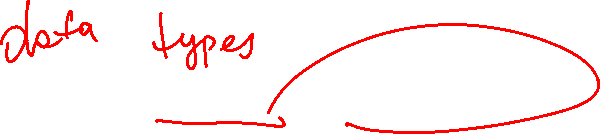 data types